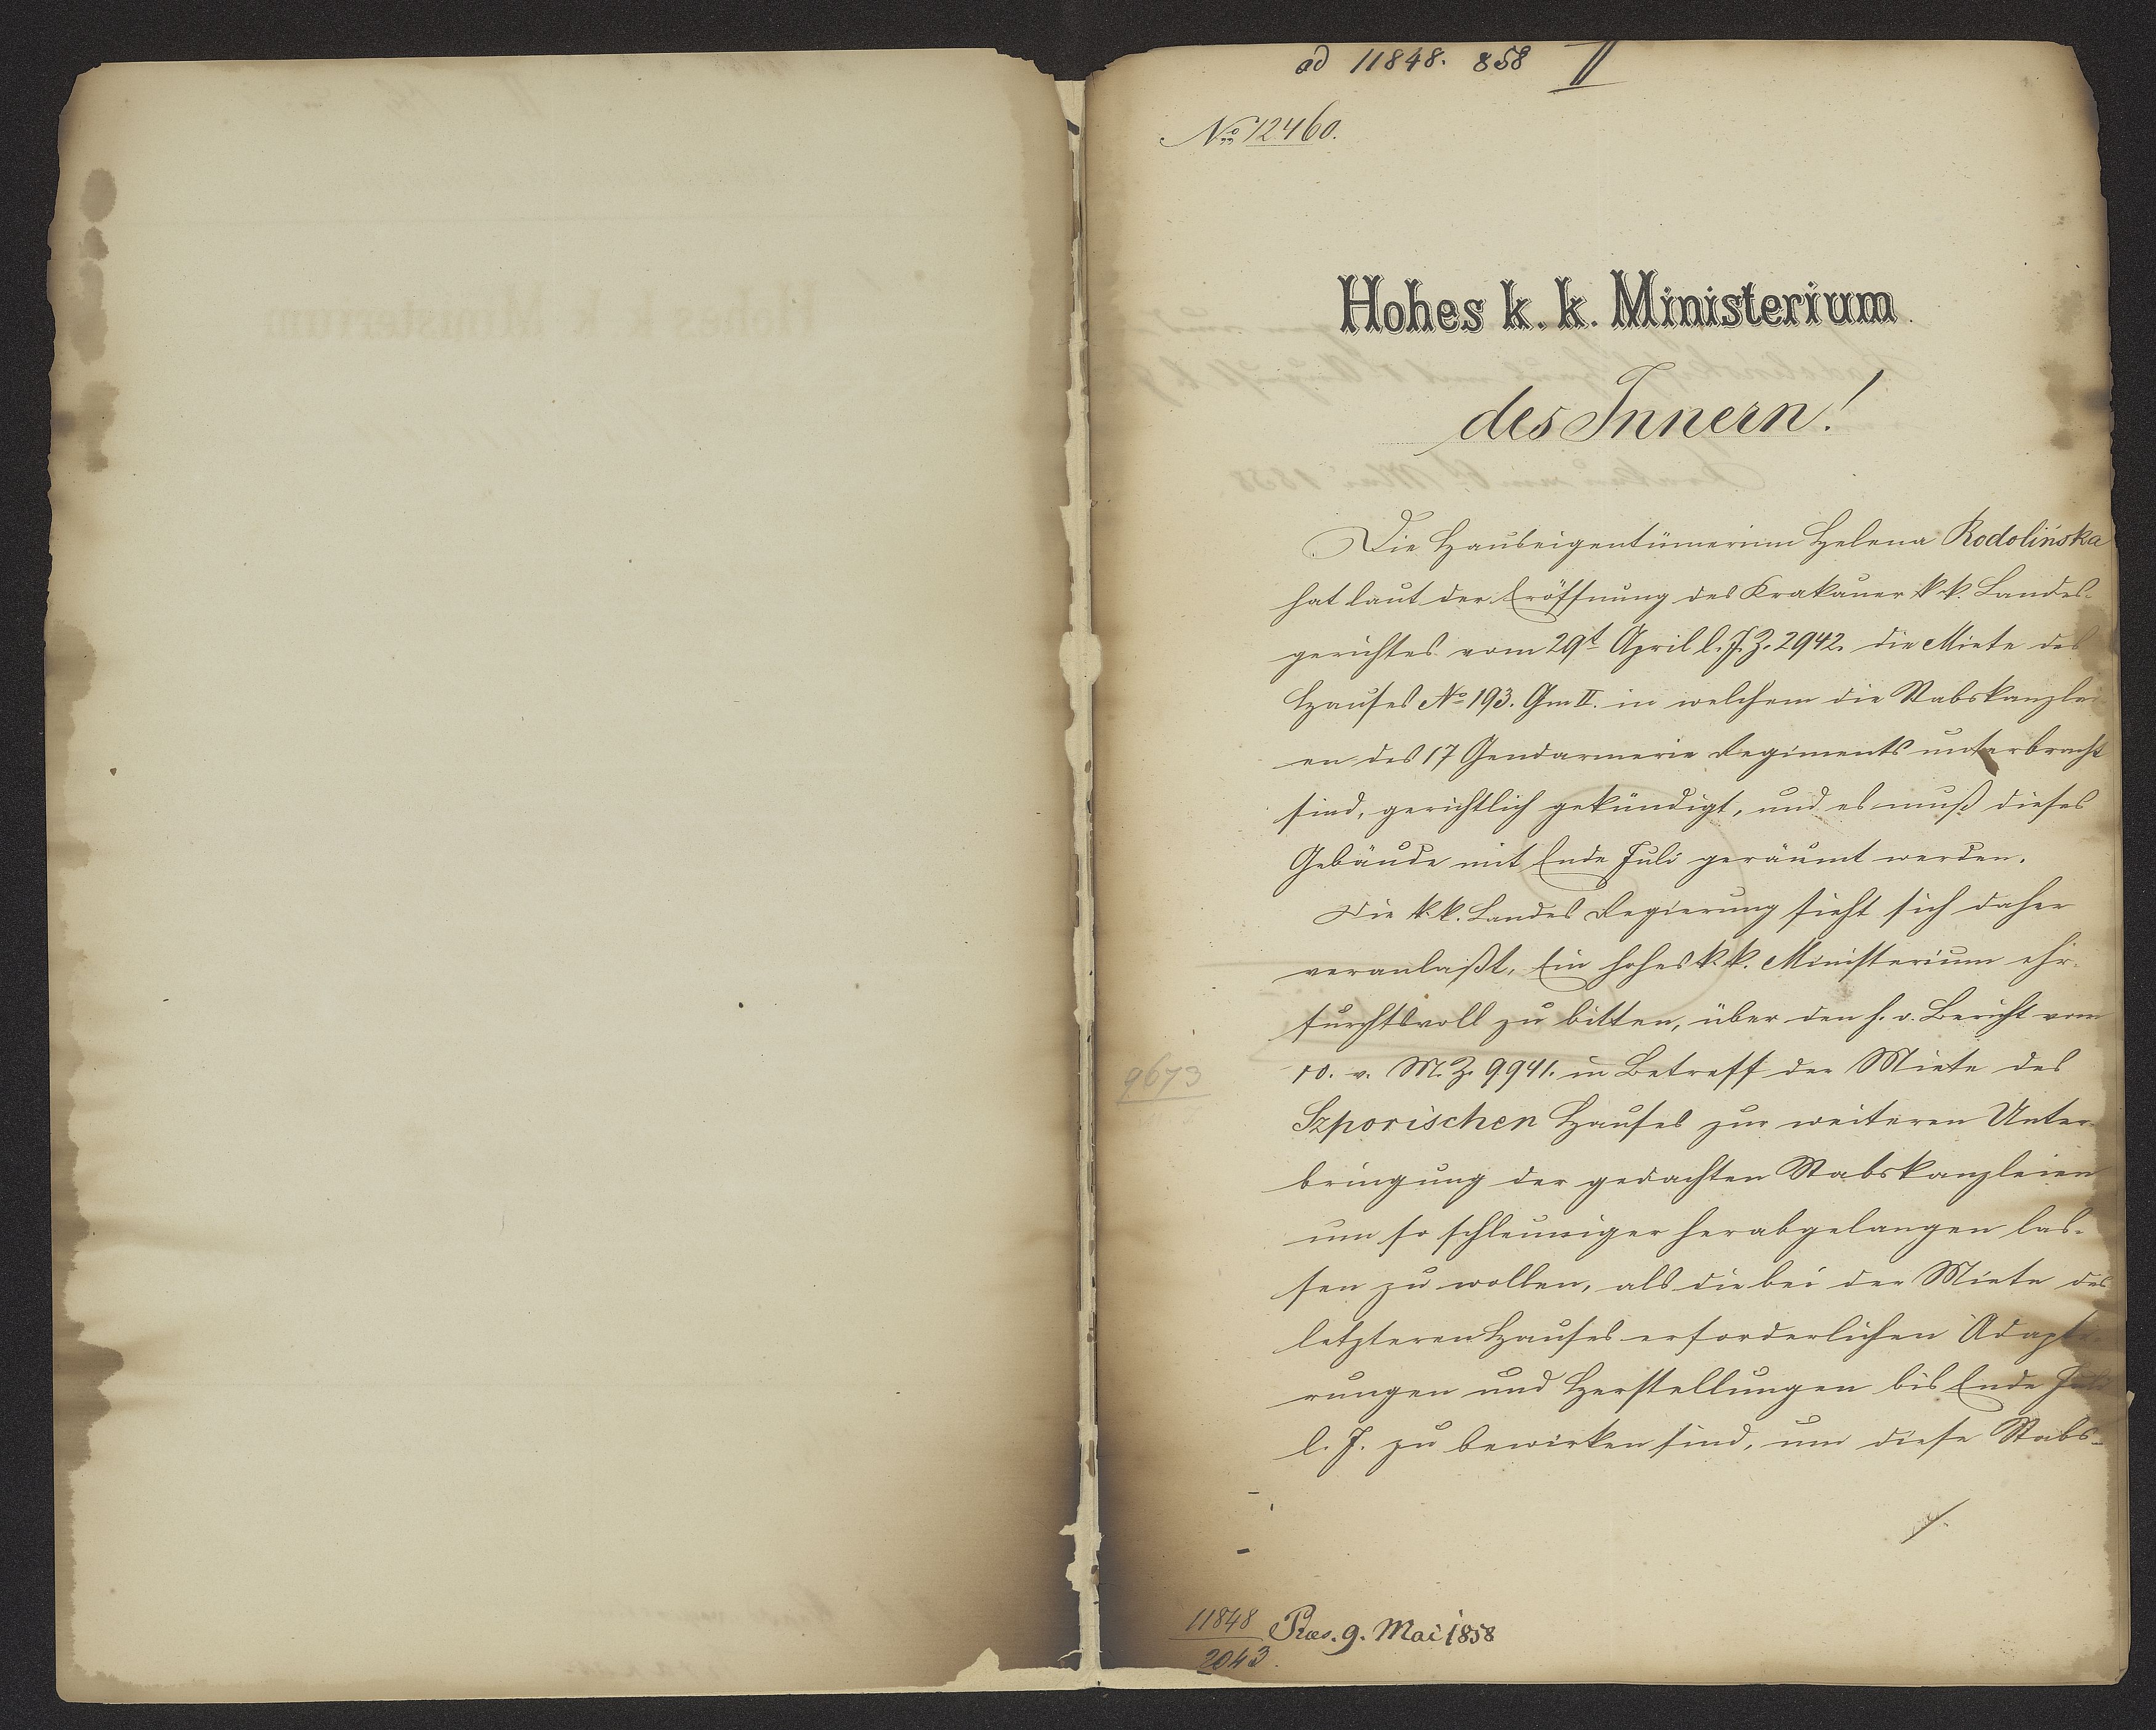 ad 11848. 858 II
No 12460.
Hohes k. k. Ministerium
des Innern!
Die Hauseigentümerinn Helena Rodolińska
hat laut der Eröffnung des Krakauer k. k. Landes-
gerichtes vom 29t April l. J. Z. 2942. die Miete des
Hauses No 193. Gm II. in welchem die Stabskanzlei
en des 17 Gendarmerie Regiments unterbracht
sind, gerichtlich gekündigt, und es muß dieses
Gebäude mit Ende Juli geräumt werden.
Die k. k. Landes Regierung sieht sich daher
veranlaßt, Ein hohes k. k. Ministerium ehr-
furchtsvoll zu bitten, über den h. o. Bericht vom
10. v. M. Z. 9941. in Betreff der Miete des
Szporischen Hauses zur weiteren Unter-
bringung der gedachten Stabskanzleien
um so schleuniger herabgelangen las-
sen zu wollen, als die bei der Miete des
9673
letzteren Hauses erforderlichen Adapti-
rungen und Herstellungen bis Ende Juli
l. J. zu bewirken sind, um diese Stabs-
11848
2043
Præs. 9. Mai 1858